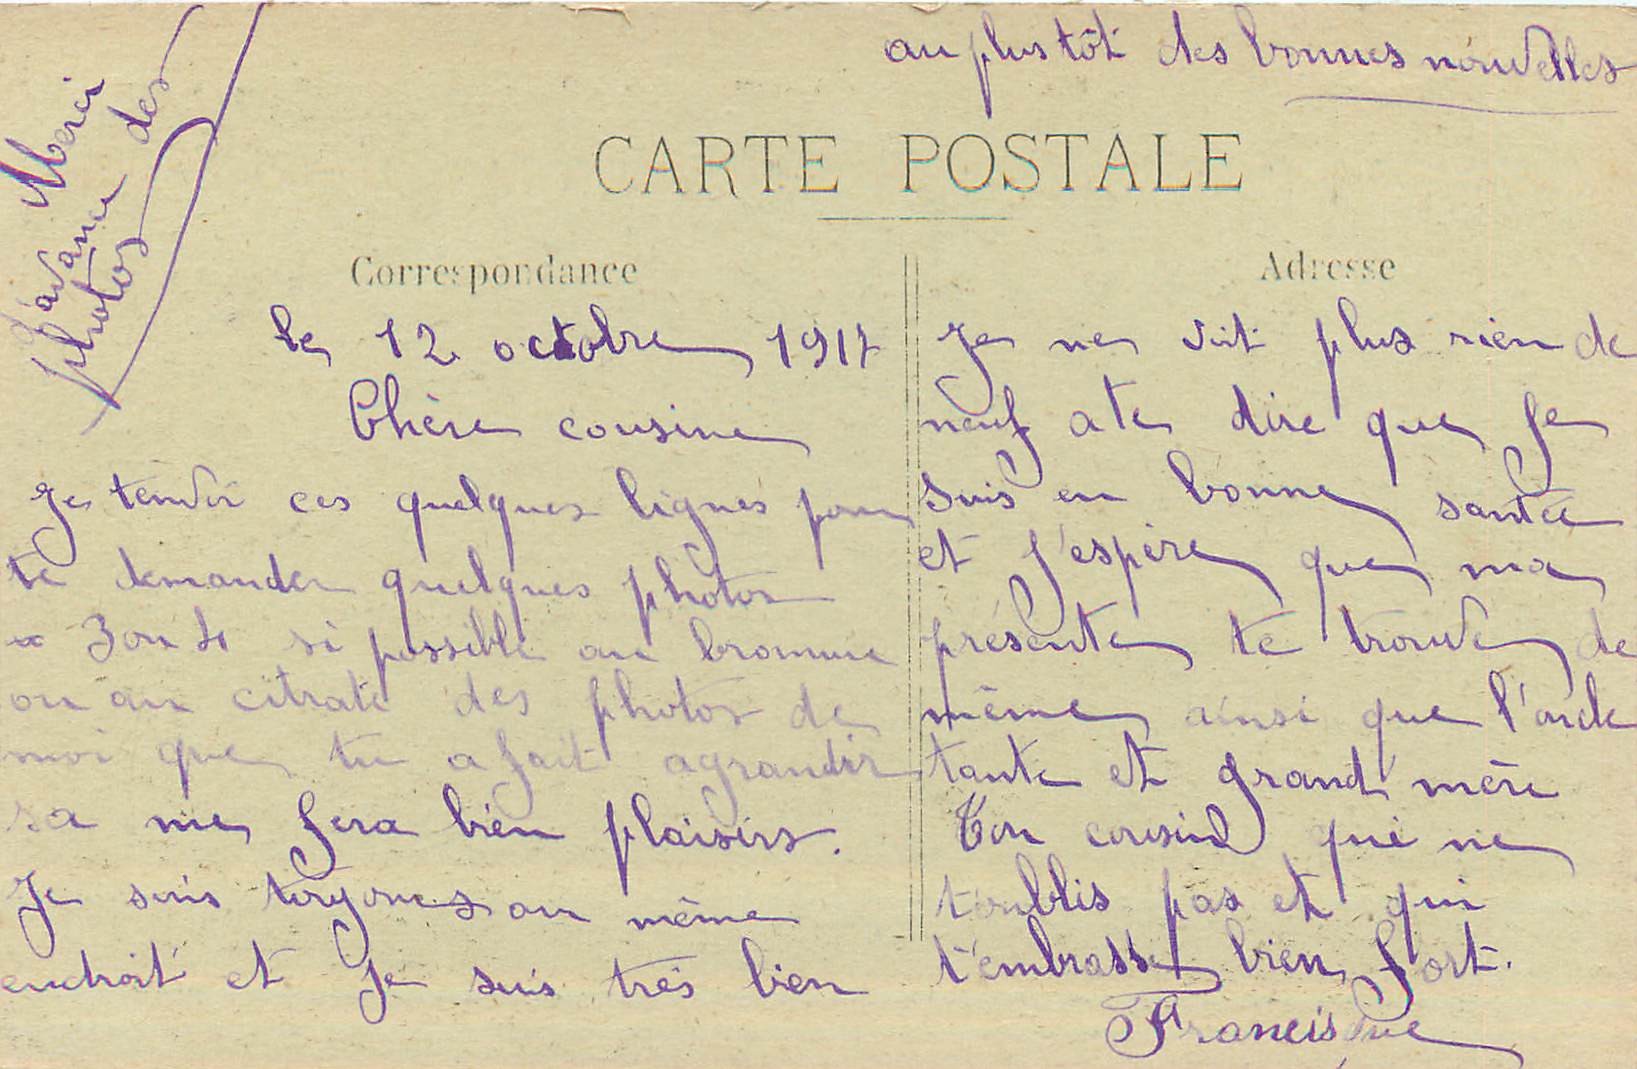 au plus tôt des bonnes nouvelles
Merci
d'avance des
photos
CARTE POSTALE
Correspondance
Adresse
le 12 octobre 1917
Chère cousine
Je tenvoi ces quelques lignes pour
te demander quelques photos
3 ou 4 si possible au bromure
ou au citrate des photos de
moi que tu a fait agrandir
sa me fera bien plaisirs.
Je suis toujours au même
endroit et Je suis très bien
Je ne voit plus rien de
neuf a te dire que Je
suis en bonne santée
et J'espère que ma
présente te trouve de
même ainsi que l'oncle
tante et grand mère
Ton cousin qui ne
t'oublis pas et qui
t'embrasse bien fort.
Francisque